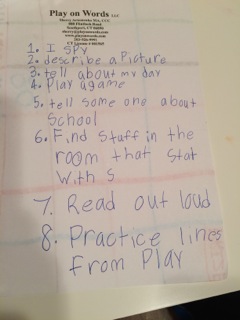 Play on Words LLC
1. I SPY
2. describe a Picture
3. tell about my day
4. Play a game
5. tell some one about
School
6. Find stuff in the
room that stat
with S
7. Read out loud
8. Practice lines
From Play